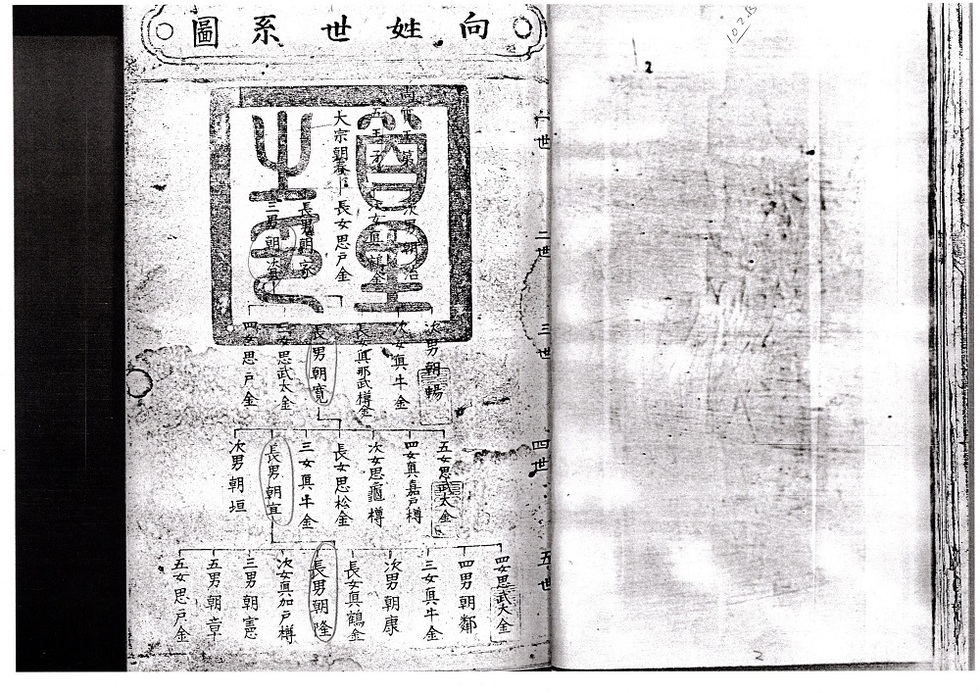 向姓世系圖
首里之印
一世
大宗朝春
二世
次男朝治
次女眞鶴金
長女思戶金
長男朝
三男朝
三世
次男朝暢
次女眞牛金
長女眞那武樽金
長男朝寬
三女思武太金
四女思戶金
四世
五女思武太金
四女眞嘉戶樽
次女思龜樽
長女思松金
三女眞牛金
長男朝宜
次男朝垣
五世
四女思武太金
四男朝鄰
三女眞牛金
次男朝康
長女眞鶴金
長男朝隆
次女眞加戶樽
三男朝憲
五男朝章
五女思戶金
2
2